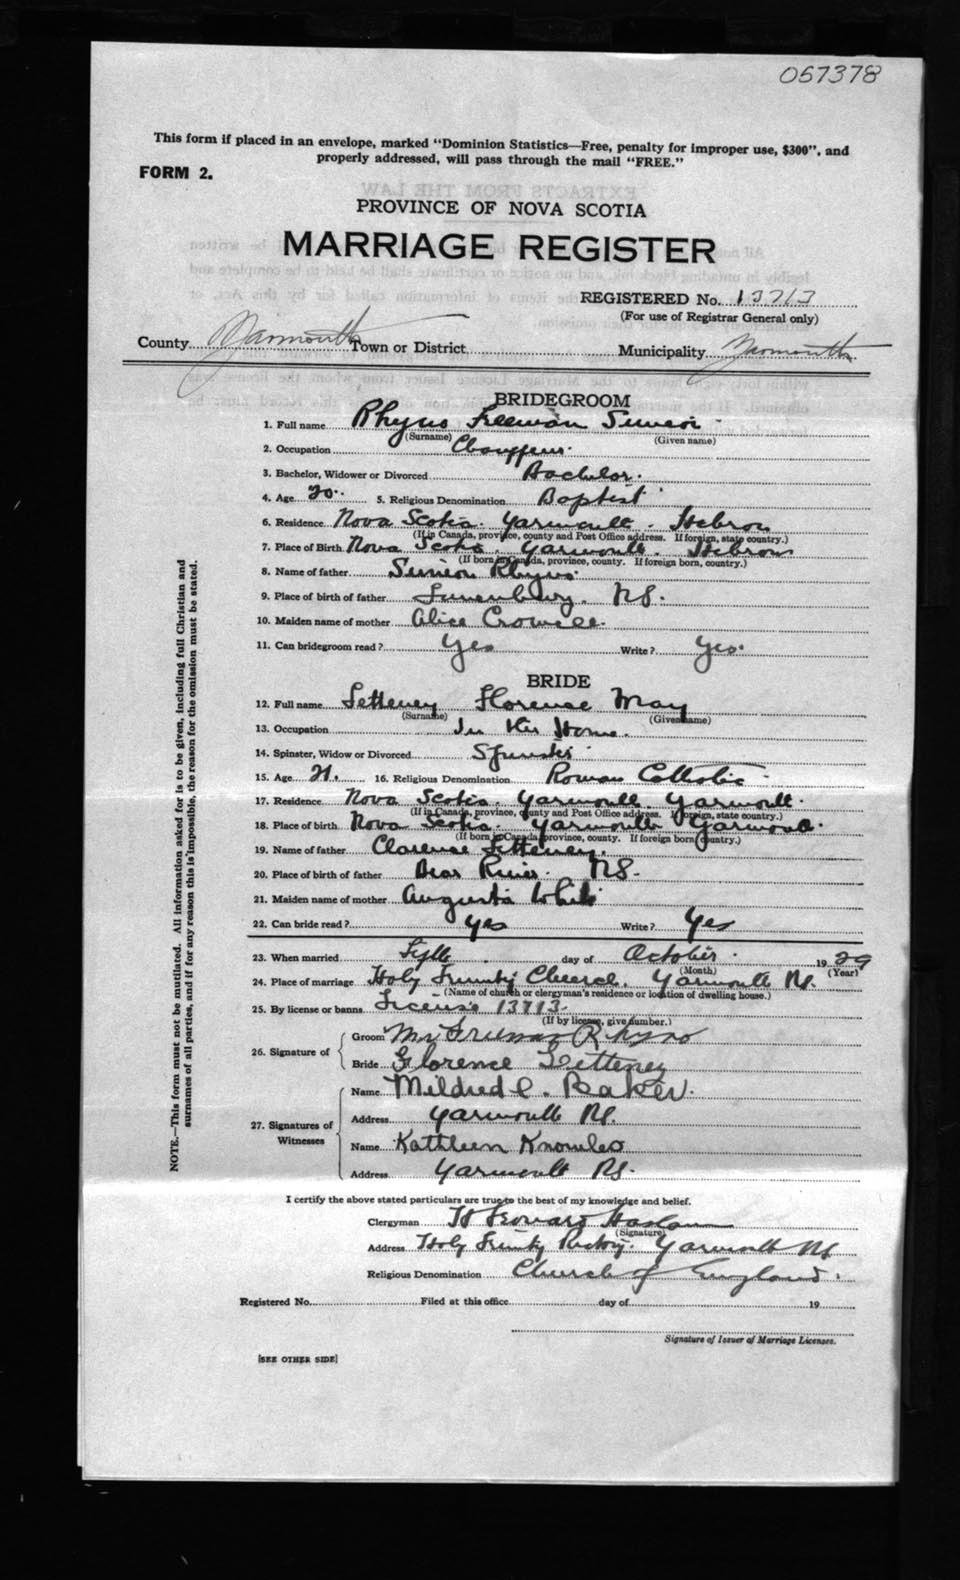 057378
This form if placed in an envelope, marked "Dominion Statistics—Free, penalty for improper use, $300", and
properly addressed, will pass through the mail "FREE."
FORM 2.
PROVINCE OF NOVA SCOTIA
MARRIAGE REGISTER
REGISTERED No. 13713
(For use of Registrar General only)
County Yarmouth Town or District Municipality Yarmouth
BRIDEGROOM
1. Full name Rhyno Freeman Simeon
(Surname) (Given name)
2. Occupation Chauffeur
3. Bachelor, Widower or Divorced Bachelor
4. Age 20 5. Religious Denomination Baptist
6. Residence Nova Scotia. Yarmouth. Hebron
(If in Canada, province, county and Post Office address. If foreign, state country.)
7. Place of Birth Nova Scotia. Yarmouth. Hebron
(If born in Canada, province, county. If foreign born, country.)
8. Name of father Simeon Rhyno
9. Place of birth of father Lunenburg. N.S.
10. Maiden name of mother Alice Crowell
11. Can bridegroom read? Yes Write? Yes
BRIDE
12. Full name Letteney Florence May
(Surname) (Given name)
13. Occupation In the Home.
14. Spinster, Widow or Divorced Spinster
15. Age 21. 16. Religious Denomination Roman Catholic
17. Residence Nova Scotia. Yarmouth. Yarmouth.
(If in Canada, province, county and Post Office address. If foreign, state country.)
18. Place of birth Nova Scotia. Yarmouth Yarmouth.
(If born in Canada, province, county. If foreign born, country.)
19. Name of father Clarence Letteney.
20. Place of birth of father Bear River. N.S.
21. Maiden name of mother Augusta White
22. Can bride read? Yes Write? Yes
23. When married day of October 1929
(Month) (Year)
24. Place of marriage Holy Trinity Church. Yarmouth N.S.
(Name of church or clergyman's residence or location of dwelling house.)
25. By license or banns License 13713
(If by license, give number.)
26. Signature of
Groom Mr Rhyno
Bride Florence Letteney
27. Signatures of Witnesses
Name Mildred C. Baker.
Address Yarmouth N.S.
Name Kathleen Knowles
Address Yarmouth N.S.
I certify the above stated particulars are true to the best of my knowledge and belief.
Clergyman Haslam
(Signature)
Address Holy Trinity Rectory. Yarmouth N.S.
Religious Denomination Church of England.
Registered No. Filed at this office day of 19
Signature of Issuer of Marriage Licenses.
[SEE OTHER SIDE]
NOTE.—This form must not be mutilated. All information asked for is to be given, including full Christian and
surnames of all parties, and if for any reason this is impossible, the reason for the omission must be stated.